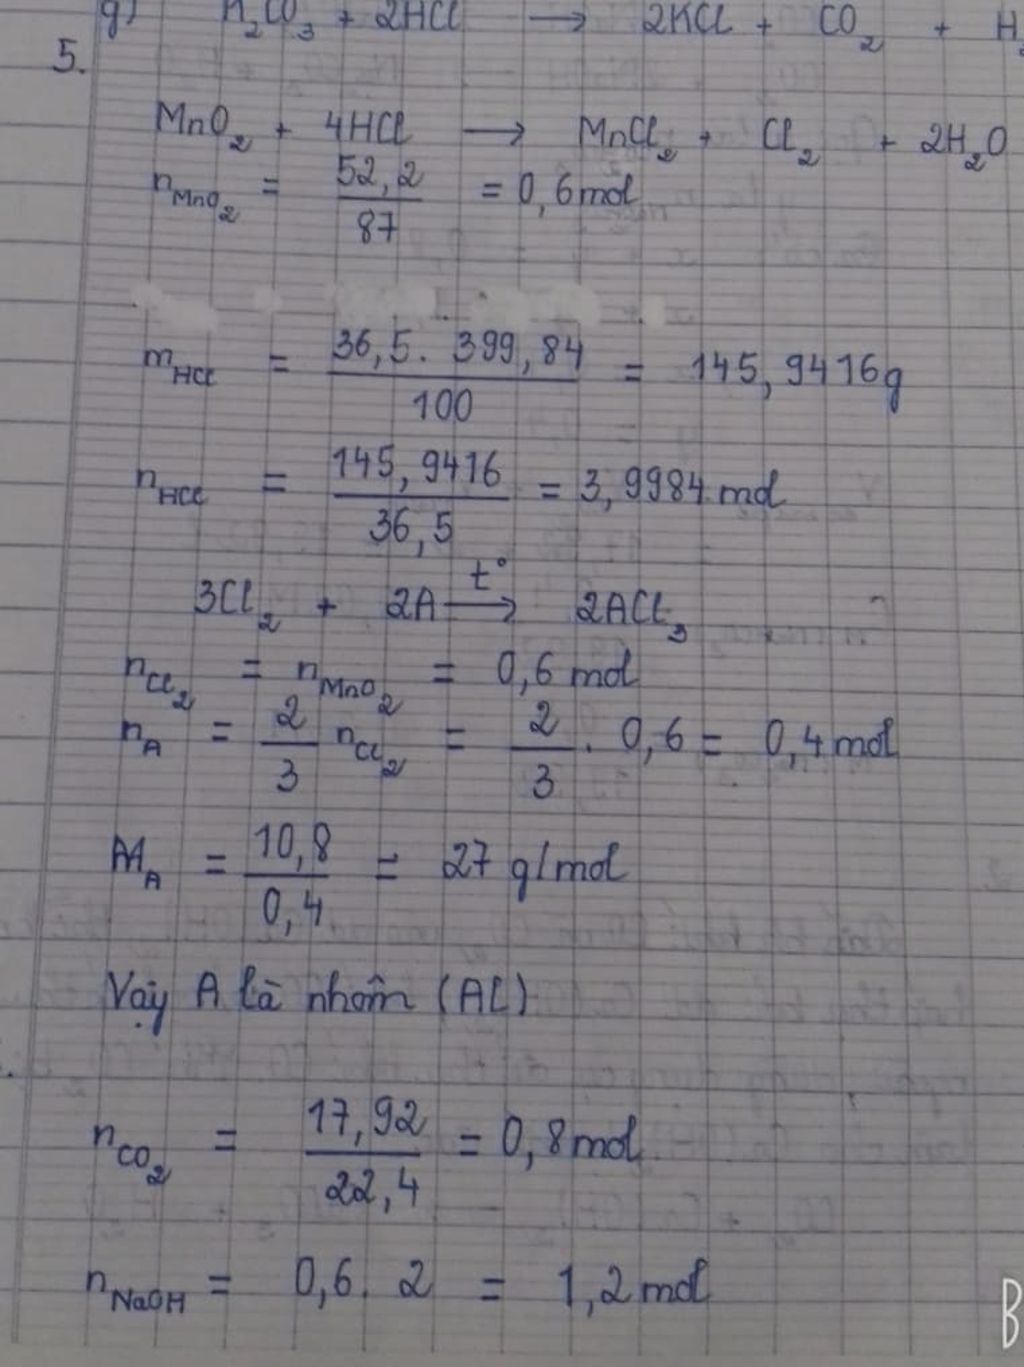 g) K₂CO₃ + 2HCl → 2KCl + CO₂ + H₂
5.
MnO₂ + 4HCl → MnCl₂ + Cl₂ + 2H₂O
nMnO₂ = 52,2 / 87 = 0,6 mol
mHCl = 36,5 . 399,84 / 100 = 145,9416g
nHCl = 145,9416 / 36,5 = 3,9984 mol
3Cl₂ + 2A →(t°) 2ACl₃
nCl₂ = nMnO₂ = 0,6 mol
nA = 2/3 nCl₂ = 2/3 . 0,6 = 0,4 mol
MA = 10,8 / 0,4 = 27 g/mol
Vậy A là nhôm (Al)
nCO₂ = 17,92 / 22,4 = 0,8 mol
nNaOH = 0,6 . 2 = 1,2 mol
B